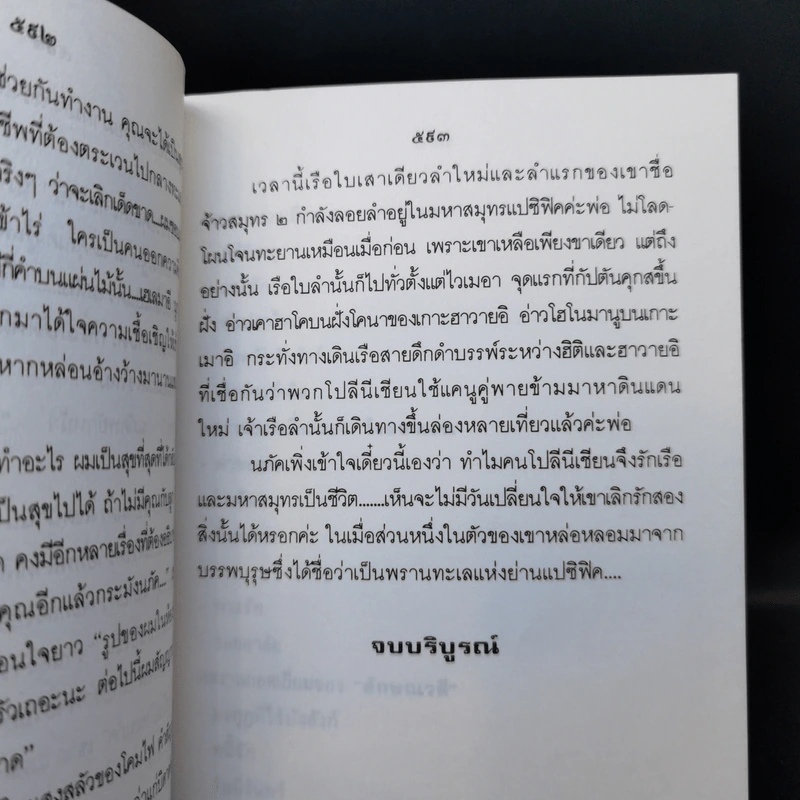 ๕๙๒
ช่วยกันทำงาน คุณจะได้เป็น
ชีพที่ต้องตระเวนไปกลางทะเล
จริงๆ ว่าจะเลิกเด็ดขาด...ผม
ข้าไร่ ใครเป็นคนออกความ
กี่คำบนแผ่นไม้นั้น....เฮเลมาอี
กมาได้ใจความเชื้อเชิญให้
หากหล่อนอ้างว้างมานาน
ทำอะไร ผมเป็นสุขที่สุดที่ได้
เป็นสุขไปได้ ถ้าไม่มีคุณกับลูก
คงมีอีกหลายเรื่องที่ต้อง
คุณอีกแล้วกระมังนภัค..."
อนใจยาว "รูปของผมในห้อง
รัวเถอะนะ ต่อไปนี้ผมสัญญา
าด"
งสลัวของโคมไฟ
๕๙๓
เวลานี้เรือใบเสาเดียวลำใหม่และลำแรกของเขาชื่อ
จ้าวสมุทร ๒ กำลังลอยลำอยู่ในมหาสมุทรแปซิฟิคค่ะพ่อ ไม่โลด-
โผนโจนทะยานเหมือนเมื่อก่อน เพราะเขาเหลือเพียงขาเดียว แต่ถึง
อย่างนั้น เรือใบลำนั้นก็ไปทั่วตั้งแต่ไวเมอา จุดแรกที่กัปตันคุกสขึ้น
ฝั่ง อ่าวเคาฮาโคบนฝั่งโคนาของเกาะฮาวายอิ อ่าวโฮโนมานูบนเกาะ
เมาอิ กระทั่งทางเดินเรือสายดึกดำบรรพ์ระหว่างฮิติและฮาวายอิ
ที่เชื่อกันว่าพวกโปลีนีเชียนใช้แคนูคู่พายข้ามมาหาดินแดน
ใหม่ เจ้าเรือลำนั้นก็เดินทางขึ้นล่องหลายเที่ยวแล้วค่ะพ่อ
นภัคเพิ่งเข้าใจเดี๋ยวนี้เองว่า ทำไมคนโปลีนีเชียนจึงรักเรือ
และมหาสมุทรเป็นชีวิต.......เห็นจะไม่มีวันเปลี่ยนใจให้เขาเลิกรักสอง
สิ่งนั้นได้หรอกค่ะ ในเมื่อส่วนหนึ่งในตัวของเขาหล่อหลอมมาจาก
บรรพบุรุษซึ่งได้ชื่อว่าเป็นพรานทะเลแห่งย่านแปซิฟิค....
จบบริบูรณ์